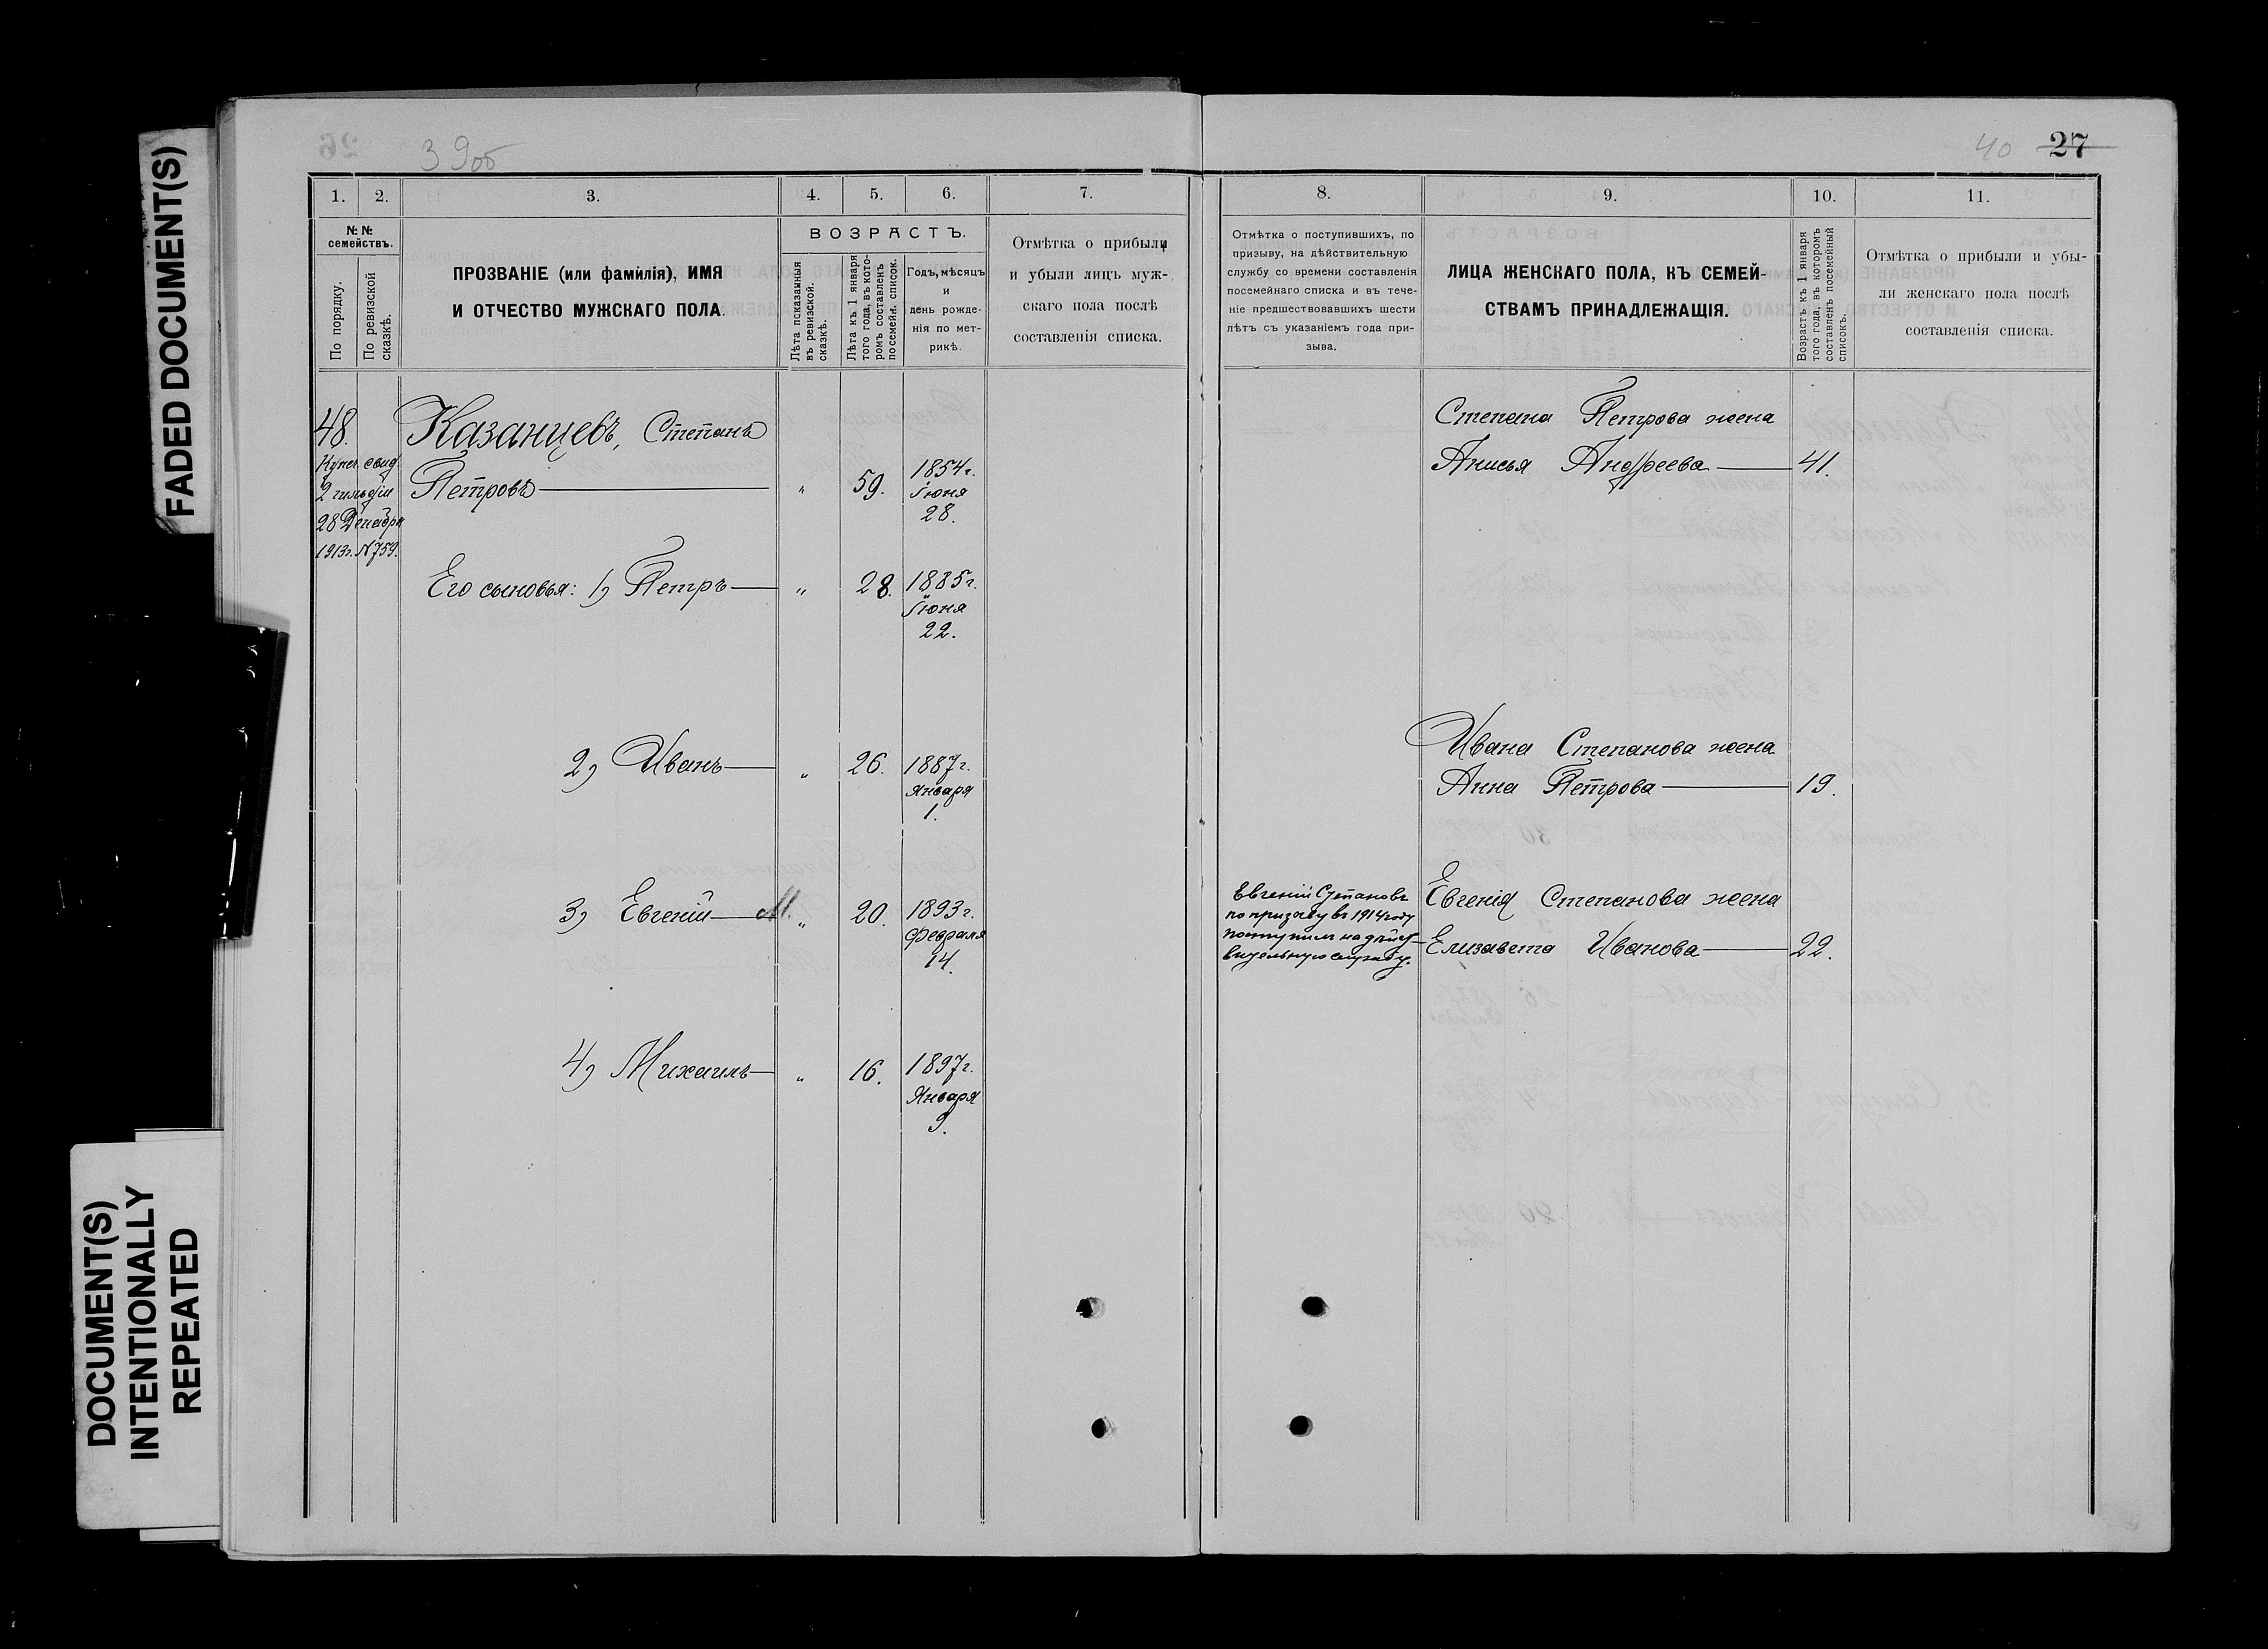 FADED DOCUMENT(S)
DOCUMENT(S)
INTENTIONALLY
REPEATED
39об
1.
2.
3.
4.
5.
6.
7.
№ №
семействъ.
По порядку.
По ревизской
сказкѣ.
ПРОЗВАНІЕ (или фамилія), ИМЯ
И ОТЧЕСТВО МУЖСКАГО ПОЛА.
ВОЗРАСТЪ.
Лѣта показанныя
въ ревизской.
сказкѣ.
Лѣта къ 1 января
того года, въ кото-
ромъ составленъ
посемейн. список.
Годъ, мѣсяцъ
и
день рожде-
нія по мет-
рикѣ.
Отмѣтка о прибыли
и убыли лицъ муж-
скаго пола послѣ
составленія списка.
48.
Купеч. свид.
2 гильдіи
28 Декабря
1913г. N 759.
Казанцевъ, Степанъ
Петровъ — " 59. 1854г.
Іюня
28.
Его сыновья: 1) Петръ — " 28. 1885г.
Іюня
22.
2) Иванъ — " 26. 1887г.
Января
1.
3) Евгеній — М. " 20. 1893г.
Февраля
14.
4) Михаилъ — " 16. 1897г.
Января
9.
40 27
8.
9.
10.
11.
Отмѣтка о поступившихъ, по
призыву, на дѣйствительную
службу со времени составленія
посемейнаго списка и въ тече-
ніе предшествовавшихъ шести
лѣтъ съ указаніемъ года при-
зыва.
ЛИЦА ЖЕНСКАГО ПОЛА, КЪ СЕМЕЙ-
СТВАМЪ ПРИНАДЛЕЖАЩІЯ.
Возрастъ къ 1 января
того года, въ которомъ
составленъ посемейный
списокъ.
Отмѣтка о прибыли и убы-
ли женскаго пола послѣ
составленія списка.
Степана Петрова жена
Анисья Андреева — 41.
Ивана Степанова жена
Анна Петрова — 19.
Евгеній Степановъ
по призыву въ 1914 году
поступилъ на дѣйст-
вительную службу.
Евгенія Степанова жена
Елизавета Иванова — 22.